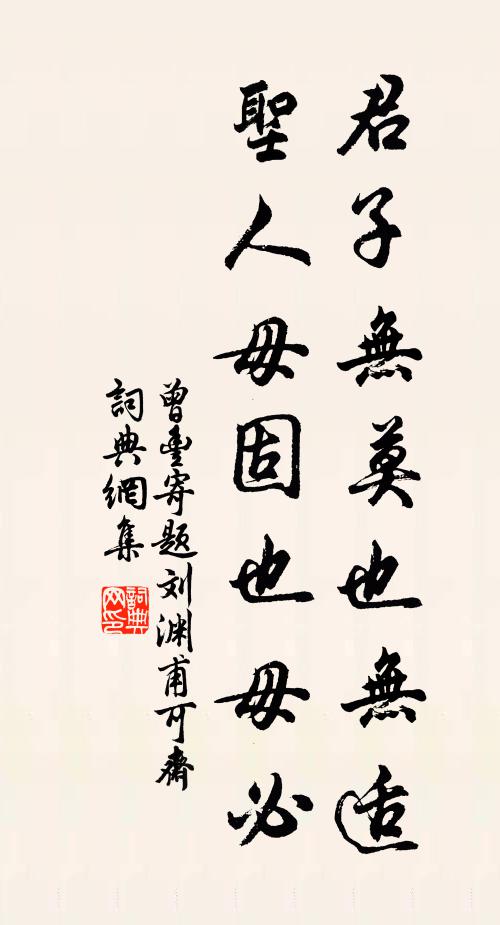 君子無莫也無适
聖人毋固也毋必
曾豊寄題刘渊甫可齋
詞典網集
詞典網印